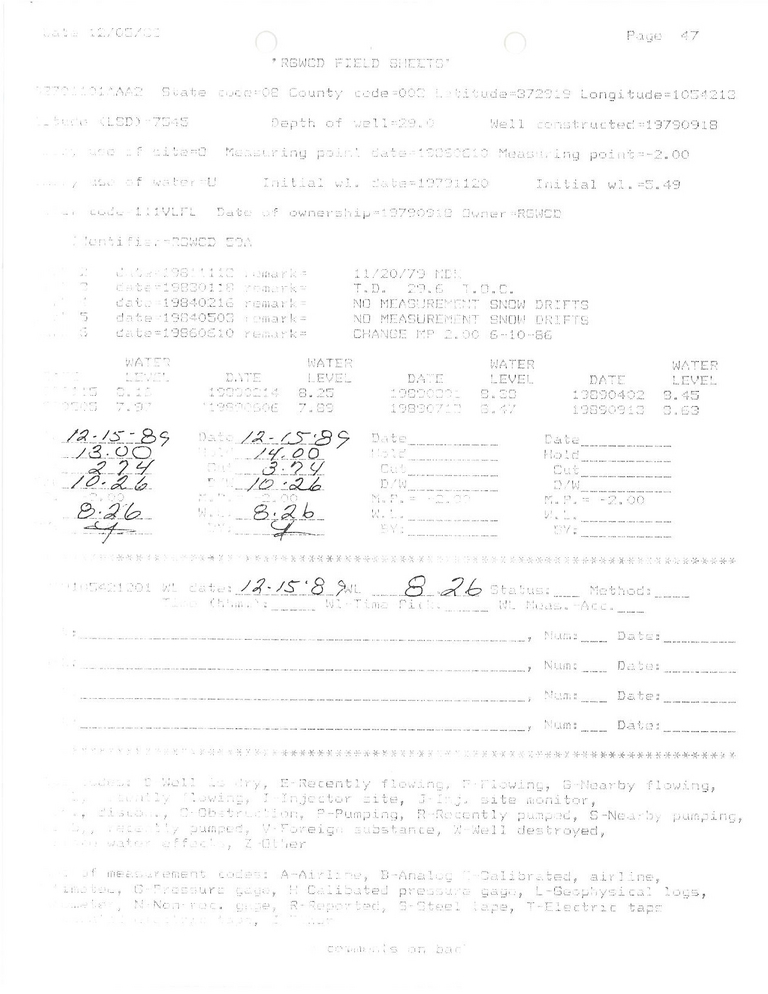 Date 12/05/
Page 47
"RGWCD FIELD SHEETS"
State code=08 County code=003 Latitude=372919 Longitude=1054213
(LSD)=7545 Depth of well=29.0 Well constructed=19790918
use of site=O Measuring point date=19860610 Measuring point=-2.00
use of water=U Initial wl. date=19791120 Initial wl.=5.49
code=111VLFL Date of ownership=19790918 Owner=RGWCD
Identifier=RGWCD 59A
2 remark= 11/20/79 MDK
3 date=19830118 remark= T.D. 29.6 T.O.C.
date=19840216 remark= NO MEASUREMENT SNOW DRIFTS
5 date=19840503 remark= NO MEASUREMENT SNOW DRIFTS
6 date=19860610 remark= CHANGE MP 2.00 6-10-86
WATER WATER WATER WATER
LEVEL DATE LEVEL DATE LEVEL DATE LEVEL
8.25 19890402 8.45
7.89
12-15-89 Date 12-15-89 Date Date
13.00 14.00 Hold Hold
2.74 3.74 Cut Cut
10.26 10.26 D/W D/W
2.00 M.P.= -2.00 M.P.= -2.00
8.26 8.26 W.L. W.L.
BY: BY:
105421201 WL date: 12-15-89 WL 8.26 Status: Method:
WL-Time WL Meas.-Acc.
, Num: Date:
, Num: Date:
, Num: Date:
, Num: Date:
codes: D Well is dry, E-Recently flowing, F-Flowing, G-Nearby flowing,
recently flowing, I-Injector site, J-Inj. site monitor,
O-Obstruction, P-Pumping, R-Recently pumped, S-Nearby pumping,
recently pumped, V-Foreign substance, W-Well destroyed,
water effects, Z-Other
of measurement codes: A-Airline, B-Analog C-Calibrated, airline,
G-Pressure gage, H Calibated pressure gage, L-Geophysical logs,
N-Non-rec. gage, R-Reported, S-Steel tape, T-Electric tape
comments on back